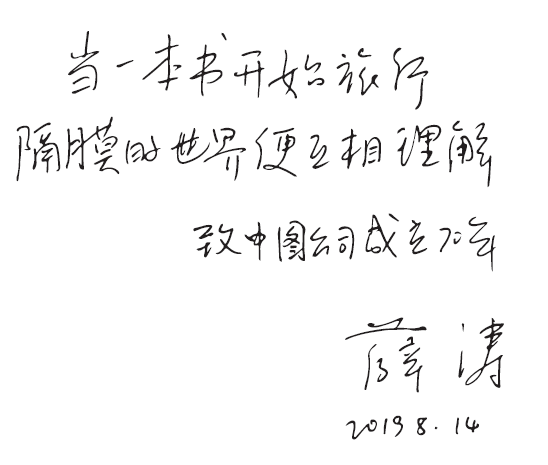 当一本书开始旅行
隔膜的世界便互相理解
致中图公司成立70年
薛涛
2019 8.14